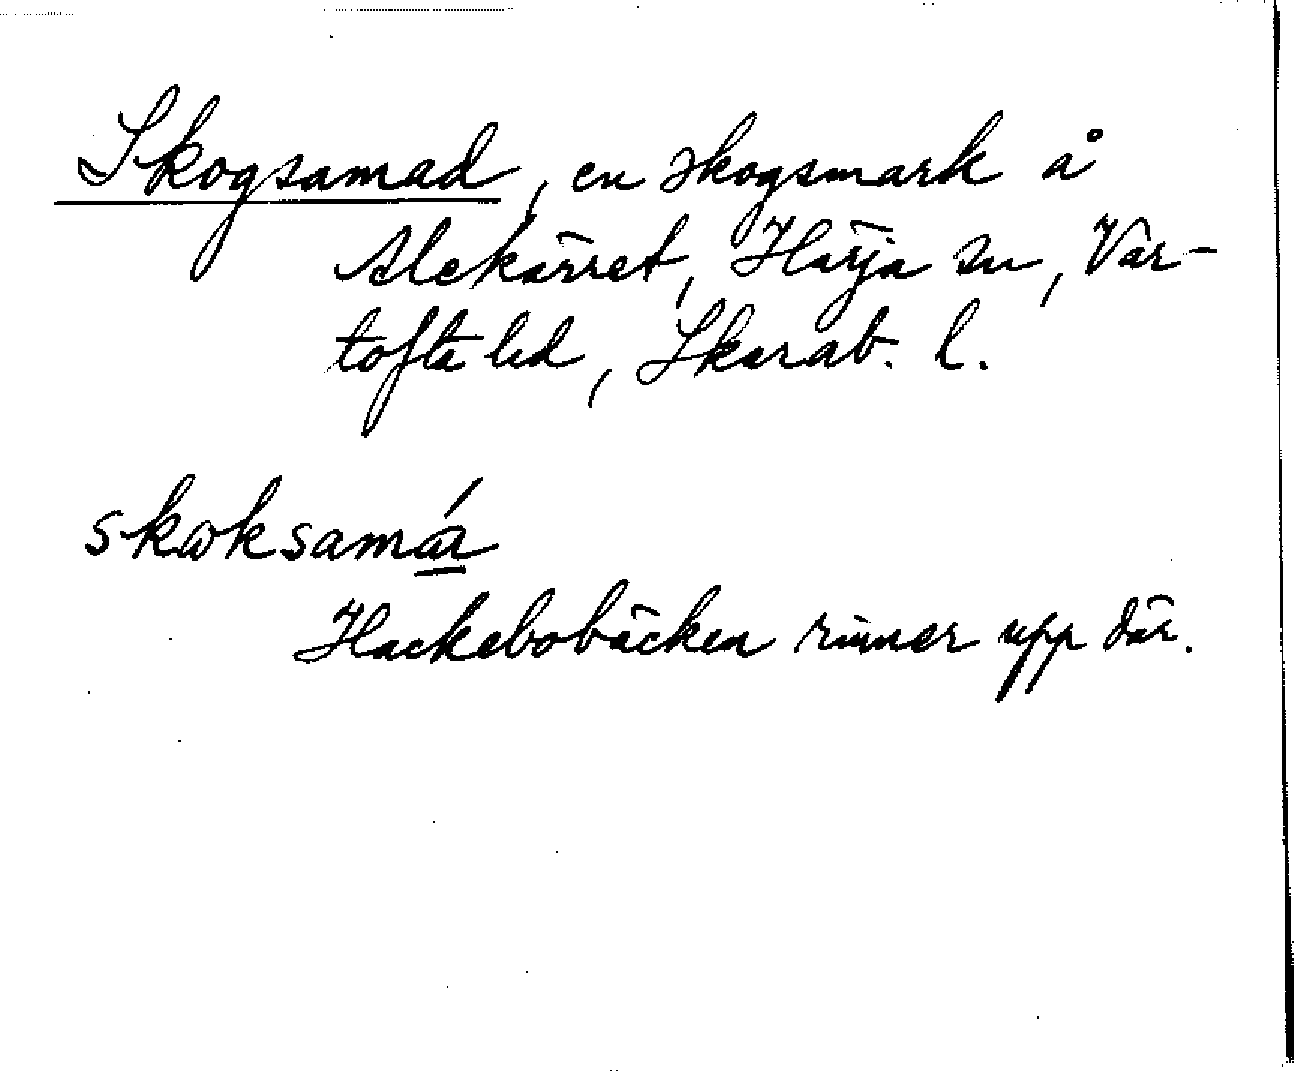 Skogsamad, en skogsmark å
Alekärret, Härja sn, Var-
tofta hd, Skarab. l.
skoksamáa
Hackebobäcken rinner upp där.